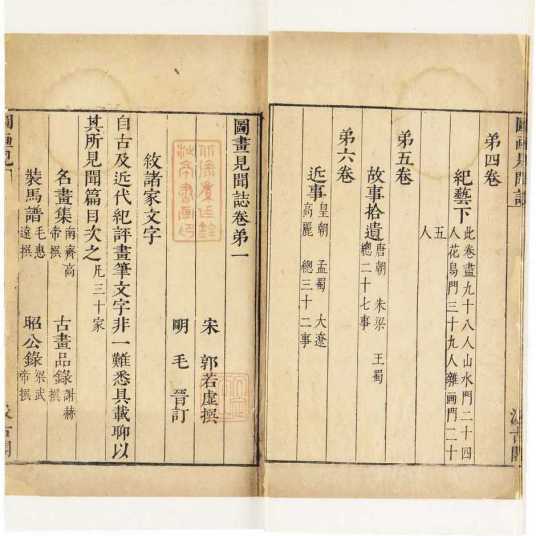 第四卷
紀藝下 此卷盡九十八人山水門二十四
人花鳥門三十九人雜画門二十
五
人
第五卷
故事拾遺 唐朝 朱梁 王蜀
總二十七事
第六卷
近事 皇朝 孟蜀 大遼
高麗 總三十二事
圖畫見聞誌卷第一
宋 郭若虛撰
明 毛 晉訂
敘諸家文字
自古及近代紀評畫筆文字非一難悉具載聊以
其所見聞篇目次之 凡三十家
名畫集 南齊高
帝撰 古畫品錄 謝赫
撰
裝馬譜 毛惠
遠撰 昭公錄 梁武
帝撰